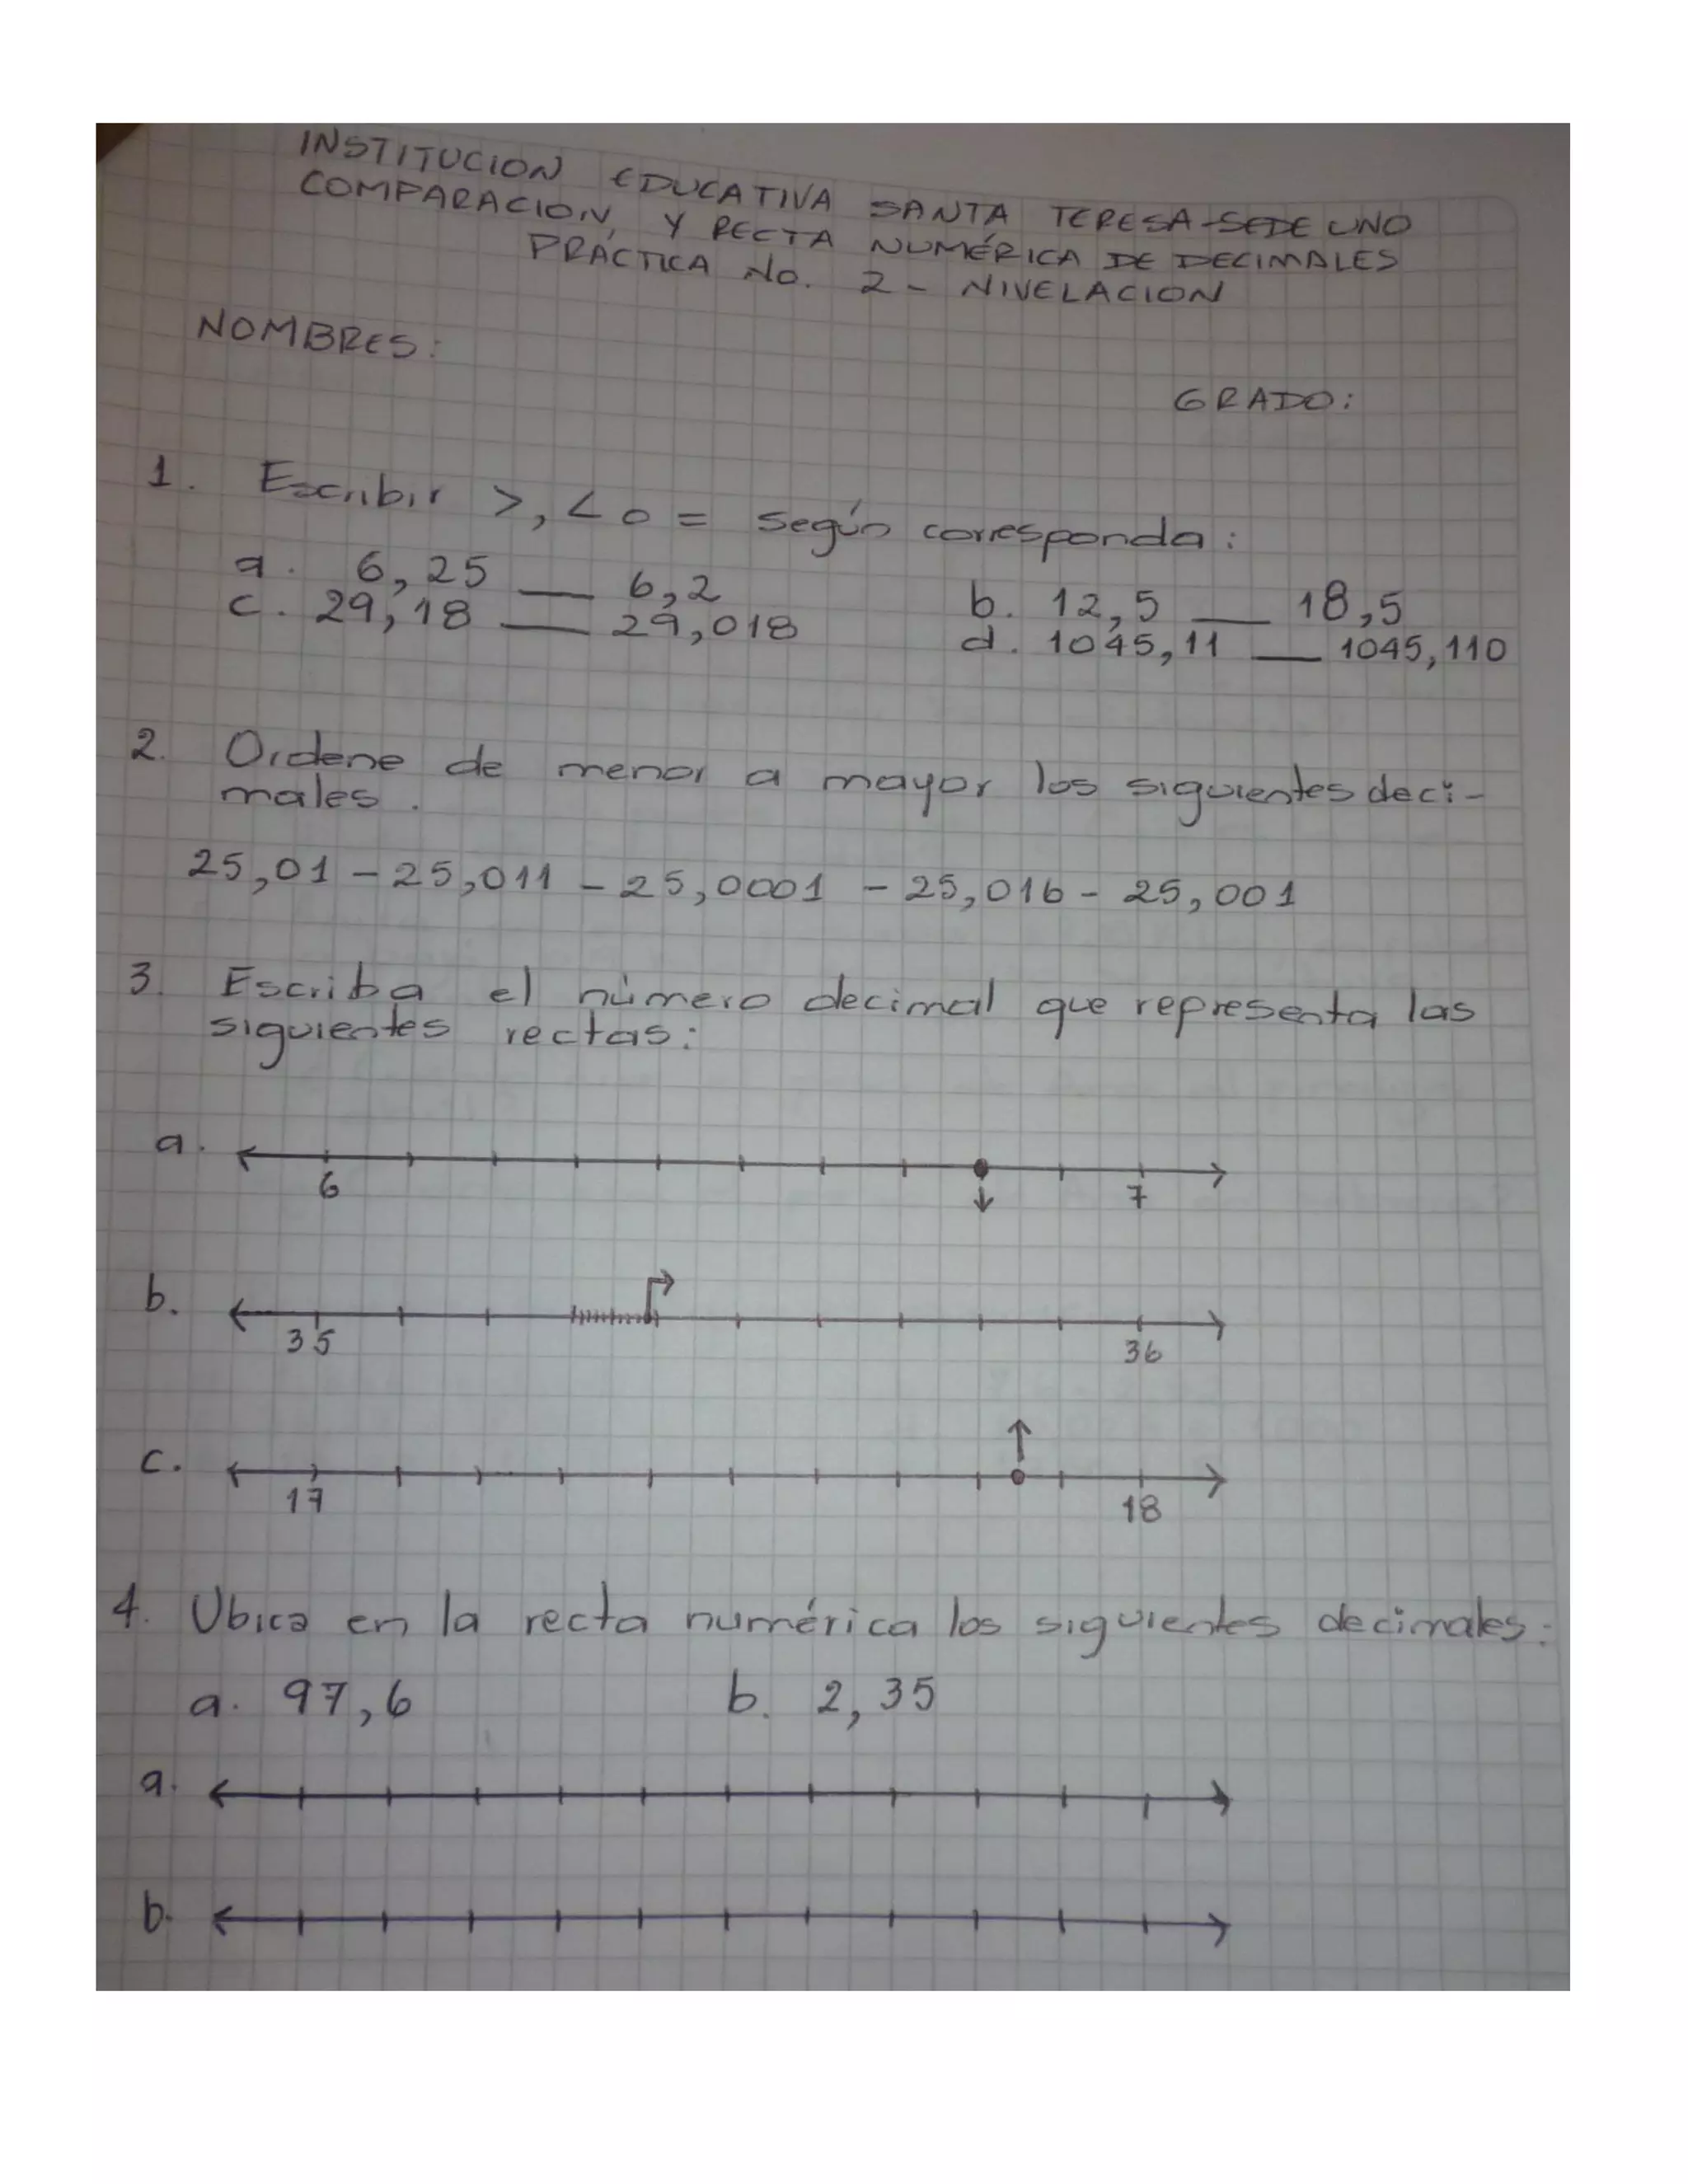 INSTITUCION EDUCATIVA SANTA TERESA-SEDE UNO
COMPARACION, Y RECTA NUMÉRICA DE DECIMALES
PRÁCTICA No. 2 - NIVELACION
NOMBRES:
GRADO:
1. Escribir >, < o = según corresponda:
a. 6,25 __ 6,2 b. 12,5 __ 18,5
c. 29,18 __ 29,018 d. 1045,11 __ 1045,110
2. Ordene de menor a mayor los siguientes deci-
males.
25,01 - 25,011 - 25,0001 - 25,016 - 25,001
3. Escriba el número decimal que representa las
siguientes rectas:
a.
6 7
b.
35 36
c.
17 18
4. Ubica en la recta numérica los siguientes decimales:
a. 97,6 b. 2,35
a.
b.